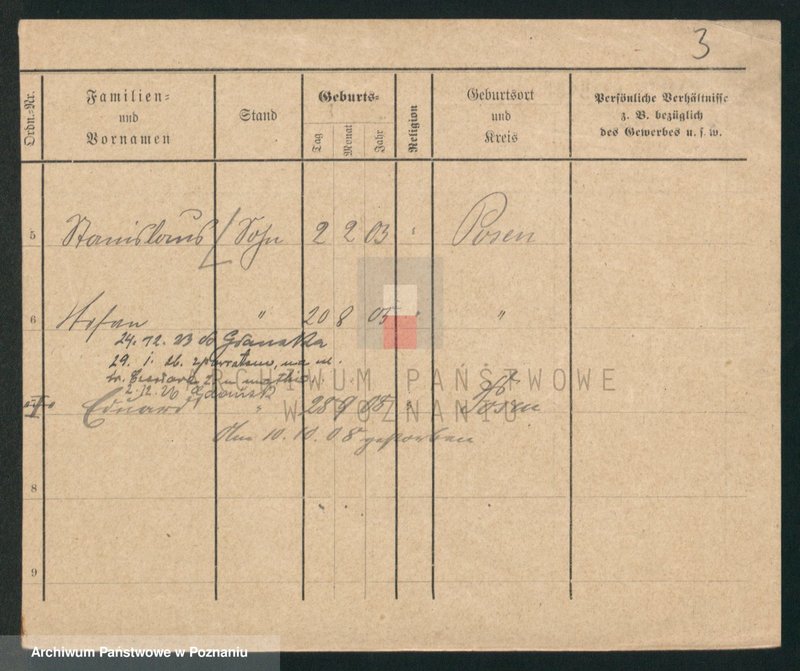 3
Ordn.-Nr.
Familien-
und
Vornamen
Stand
Geburts-
Tag
Monat
Jahr
Religion
Geburtsort
und
Kreis
Persönliche Verhältnisse
z. B. bezüglich
des Gewerbes u. s. w.
5 Stanislaus Sohn 2 2 03 " Posen
6 Stefan " 20 8 05 " "
24. 12. 23 do Gdanska
29. 1. 26. z powrotem, na ul.
2. 12. 26 Gdańsk
Eduard " 28 9 " Posen
Am 10. 10. 08 gestorben
8
9
ARCHIWUM PAŃSTWOWE
W POZNANIU
Archiwum Państwowe w Poznaniu